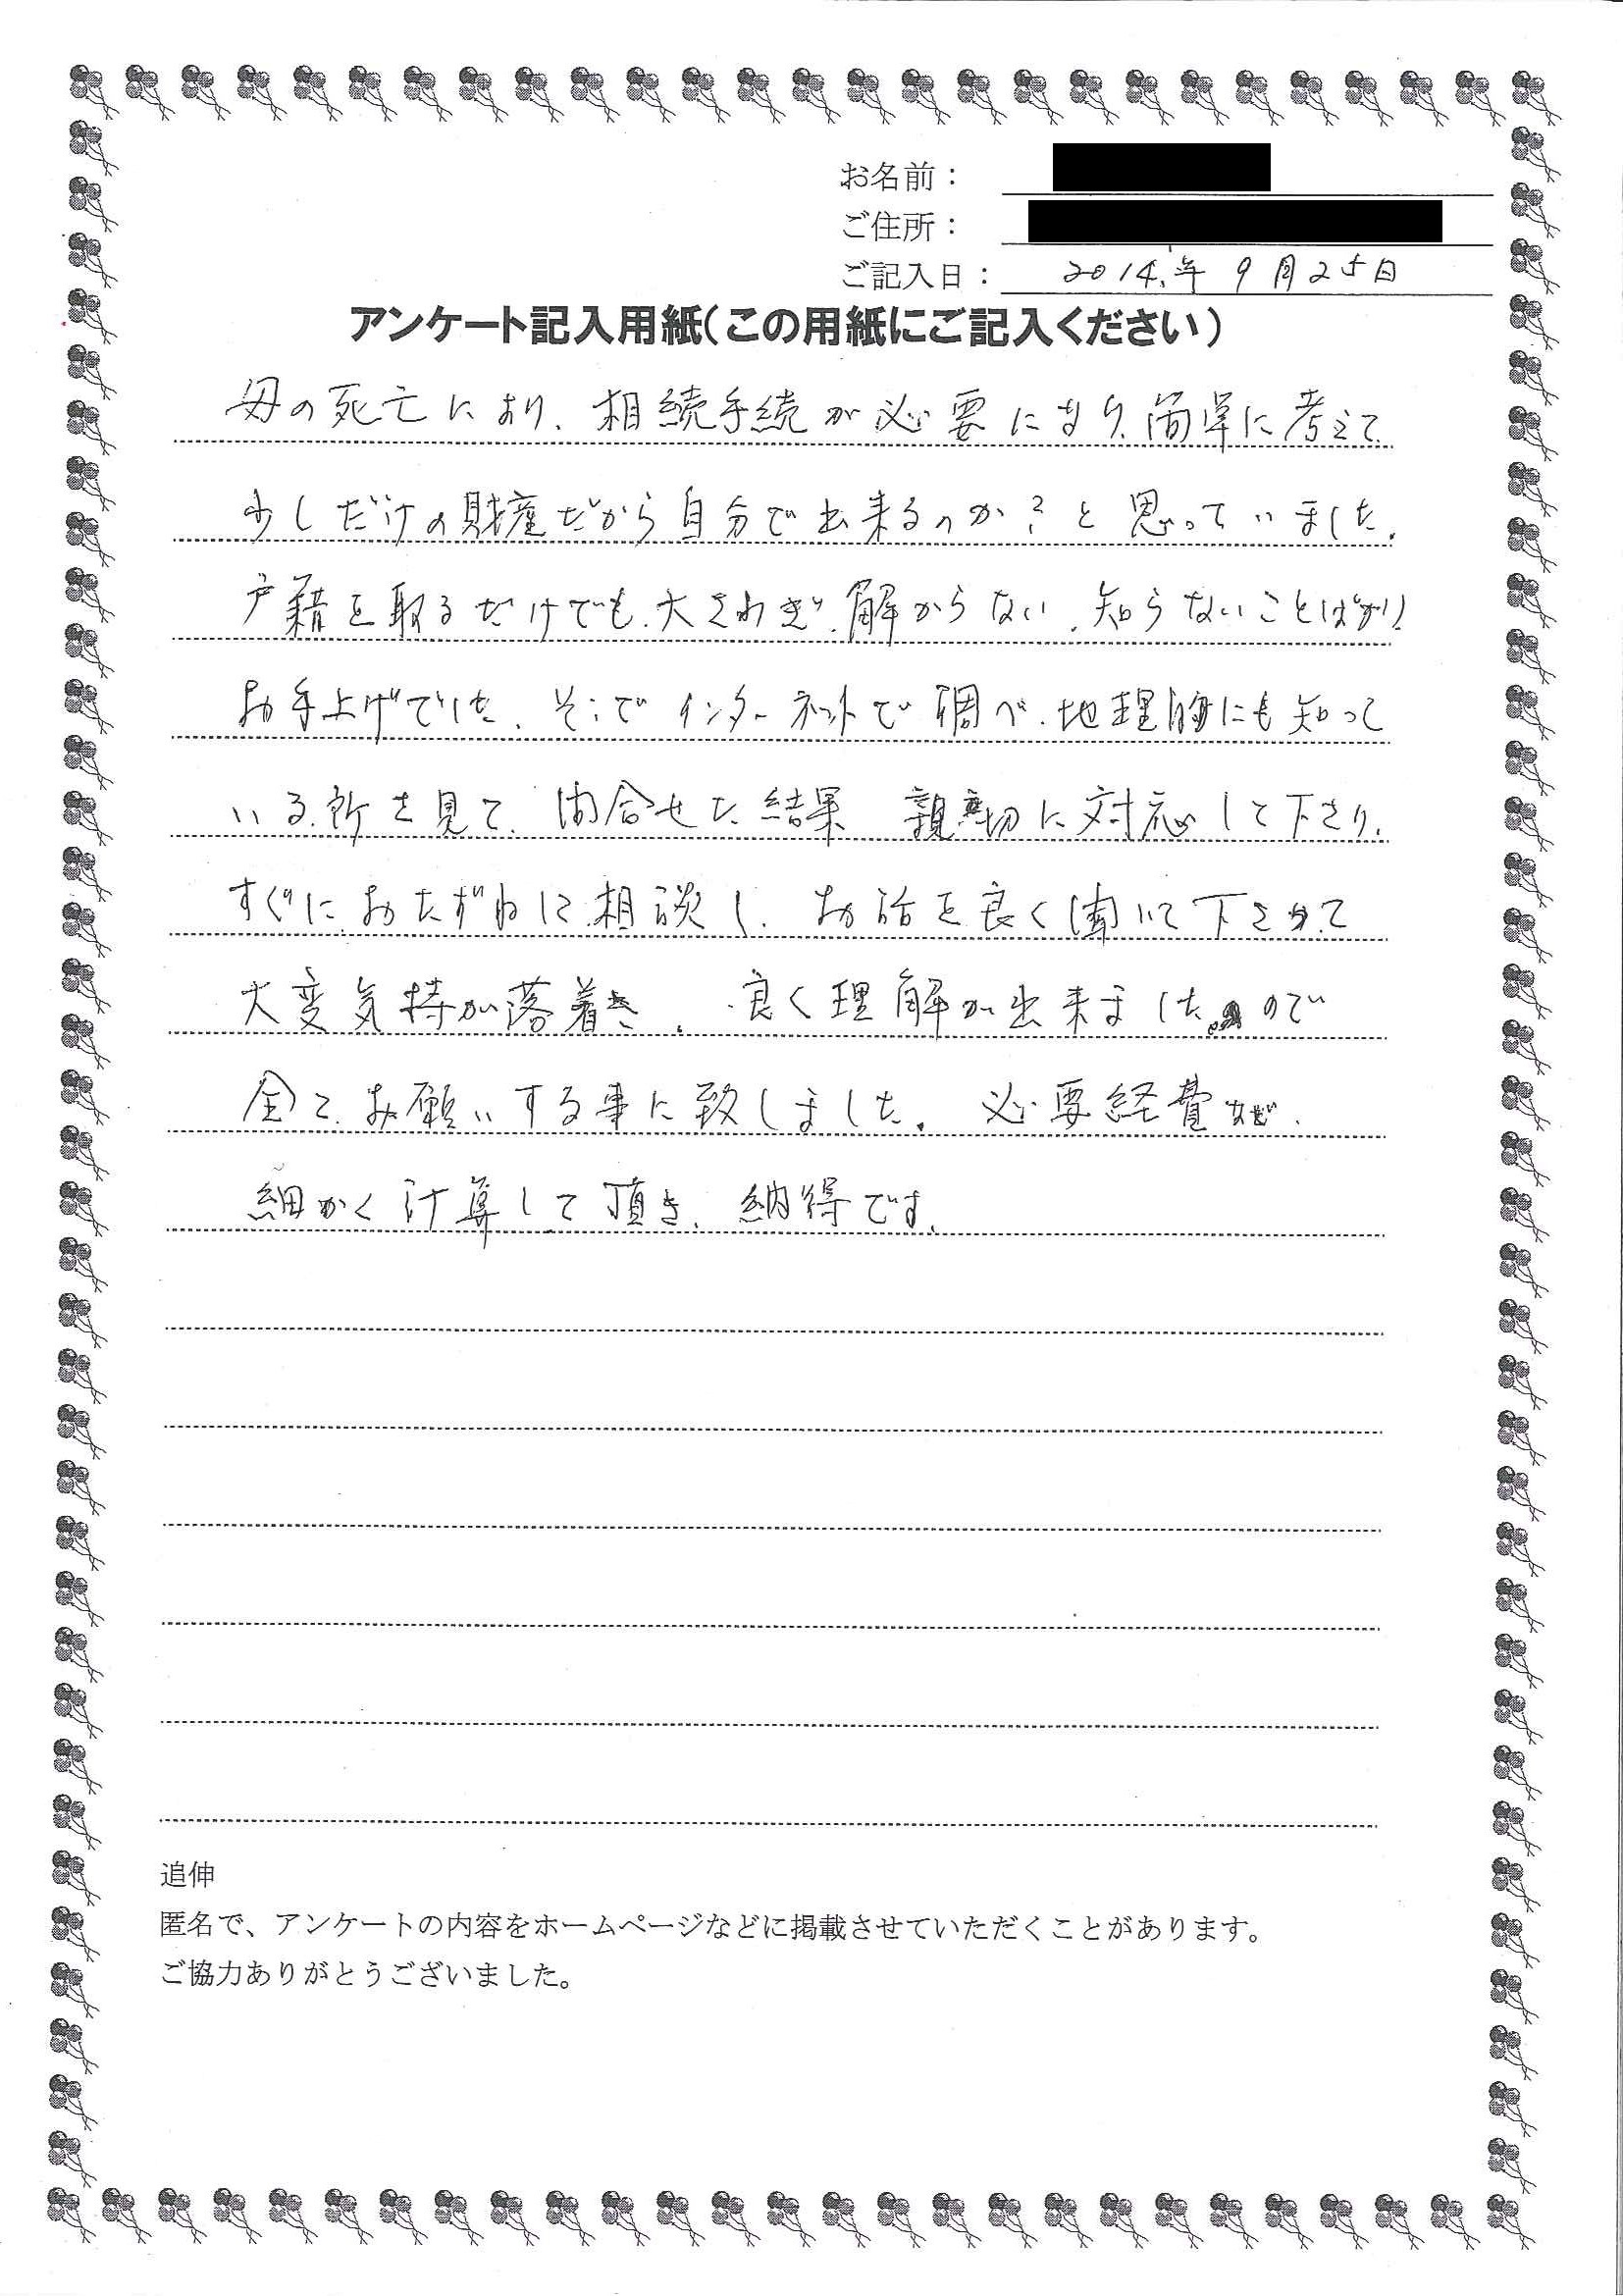 お名前：
ご住所：
ご記入日： 2014年9月25日
アンケート記入用紙（この用紙にご記入ください）
母の死亡におり、相続手続が必要になり、簡単に考えて
少しだけの財産だから自分で出来るのか？と思っていました。
戸籍を取るだけでも、大さわぎ、解からない、知らないことばかり
お手上げでした、そこでインターネットで調べ、地理的にも知って
いる所を見て、問合せた結果 親切に対応して下さり、
すぐにおたずねに相談し、お話を良く聞いて下さって
大変気持が落着き、良く理解が出来ましたので
全てお願いする事に致しました。必要経費など、
細かく計算して頂き、納得です。
追伸
匿名で、アンケートの内容をホームページなどに掲載させていただくことがあります。
ご協力ありがとうございました。